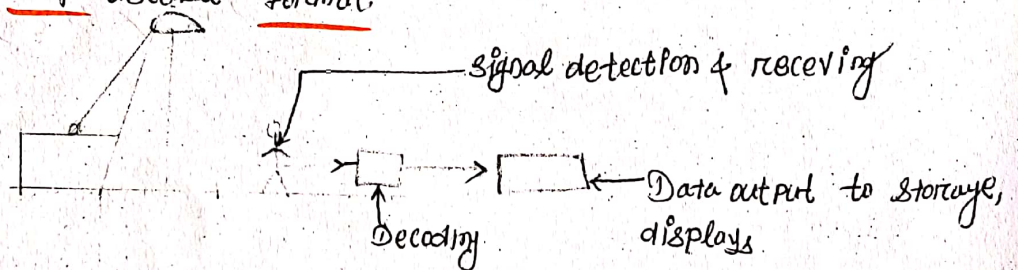 format.
signal detection & receving
Decoding
Data output to storage,
displays